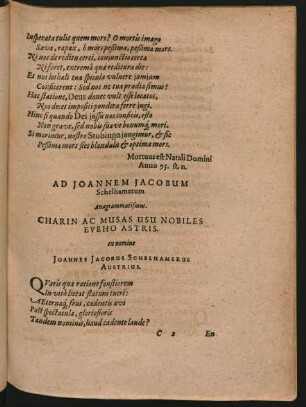 Insperata tulit quem mors? O mortis imago
Sæva, rapax, ô mors pessima, pessima mors.
Ni nos de reditu certi, conjuncto certa
Ni foret, extremâ quæ reditura die:
Et nos lethali tua spicula vulnere jamjam
Conficerent: Sed nos ne tua præda simus!
Hac statione, Deus donec vult esse locatos,
Nos decet impositi pondera ferre jugi.
Hinc si quando Dei jussu nos conficis, esto
Non grave, sed nobis suave beatumq́, mori.
Si morimur, nostro Stubingo jungimur, & sic
Pessima mors fies blandula & optima mors.
Mortuus est Natali Domini
Anno 95. st. n.
AD JOANNEM JACOBUM
Schelhamerum
Anagrammatismus.
CHARIN AC MUSAS USU NOBILES
EVEHO ASTRIS.
ex nomine
JOANNES JACOBUS SCHELHAMERUS
AUSTRIUS.
QVaris quâ ratione faustiorem
In vitâ liceat statum tueri:
Æternaq́, frui, cadentis ævi
Post spectacula, gloriosioris
Tandem nominis, haud cadente laude?
C 2 En